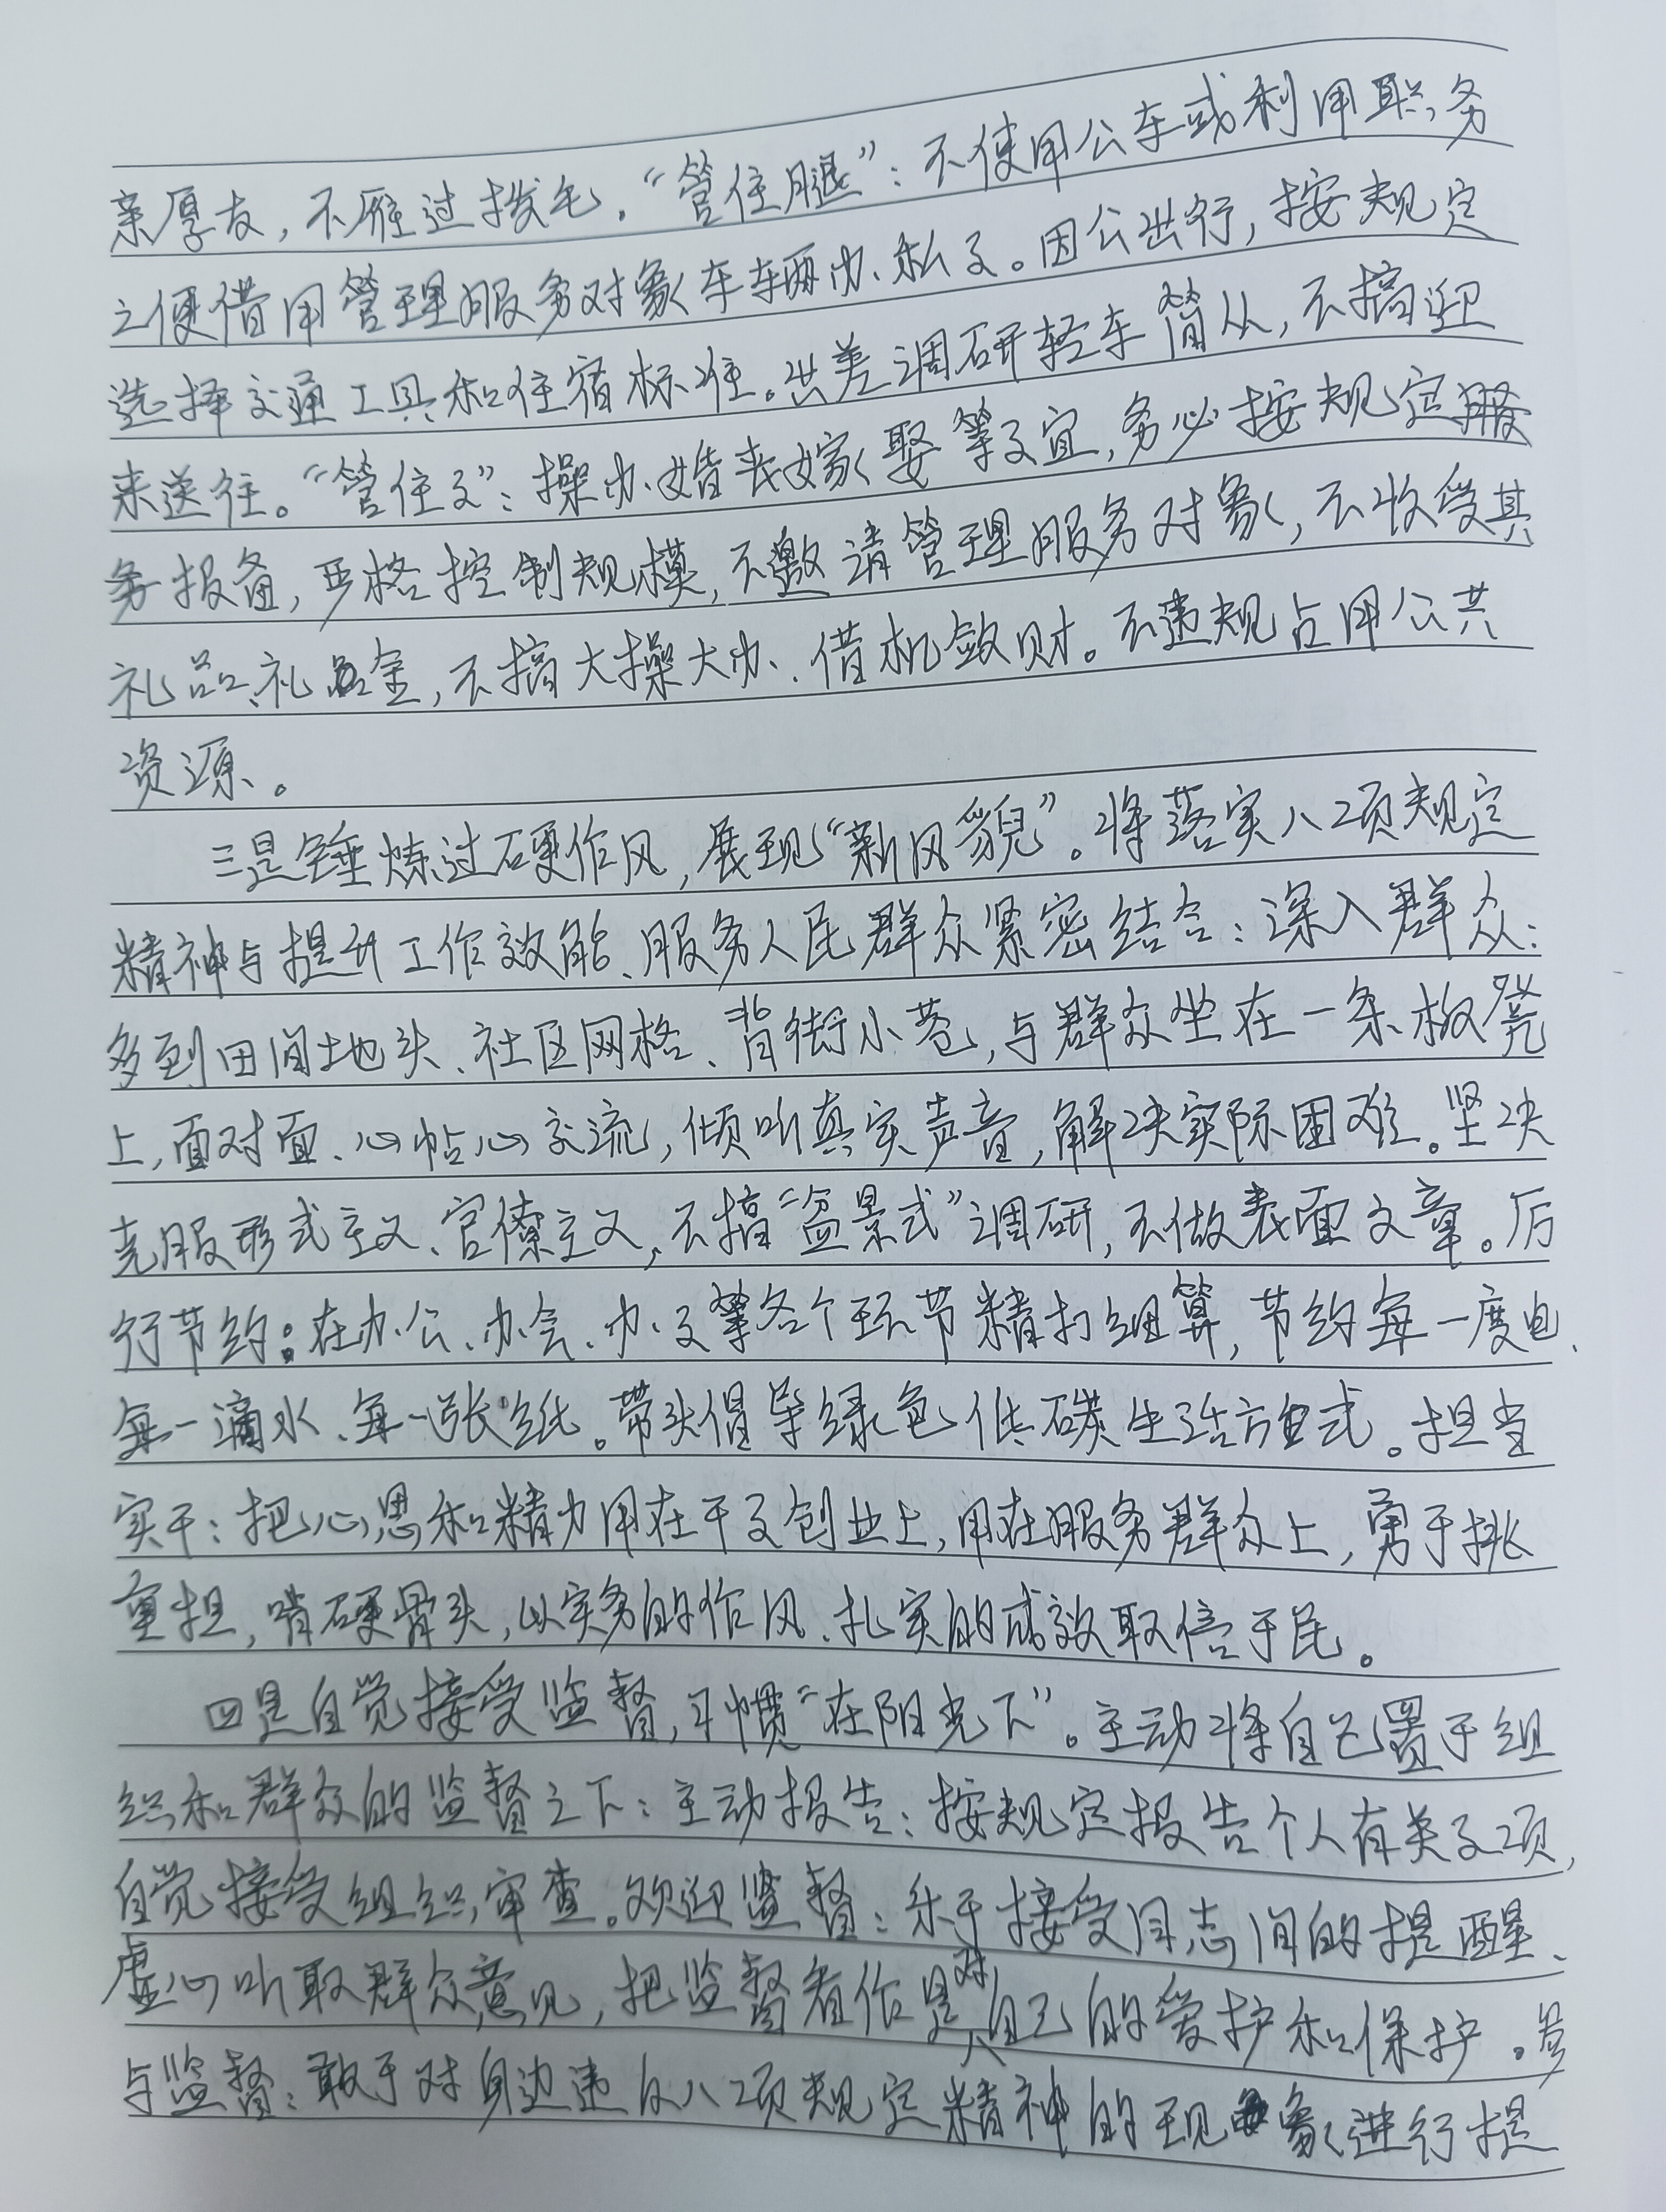 亲厚友，不雁过拔毛。“管住腿”：不使用公车或利用职务
之便借用管理服务对象车辆办私事。因公出行，按规定
选择交通工具和住宿标准。出差调研轻车简从，不搞迎
来送往。“管住事”：操办婚丧嫁娶等事宜，务必按规定
务报备，严格控制规模，不邀请管理服务对象，不收受其
礼品、礼金，不搞大操大办、借机敛财。不违规占用公共
资源。
三是锤炼过硬作风，展现“新风貌”。将落实八项规定
精神与提升工作效能、服务人民群众紧密结合：深入群众：
多到田间地头、社区网格、背街小巷，与群众坐在一条板凳
上，面对面、心帖心交流，倾听真实声音，解决实际困难。坚决
克服形式主义、官僚主义，不搞“盆景式”调研，不做表面文章。厉
行节约：在办公、办会、办事等各个环节精打细算，节约每一度电、
每一滴水、每一张纸。带头倡导绿色低碳生活方式。担当
实干：把心思和精力用在干事创业上，用在服务群众上，勇于挑
重担，啃硬骨头，以实务的作风、扎实的成效取信于民。
四是自觉接受监督，习惯“在阳光下”。主动将自己置于组
织和群众的监督之下：主动报告：按规定报告个人有关事项，
自觉接受组织审查。欢迎监督：乐于接受同志间的提醒、
虚心听取群众意见，把监督看作是对自己的爱护和保护。参
与监督：敢于对身边违反八项规定精神的现象进行提